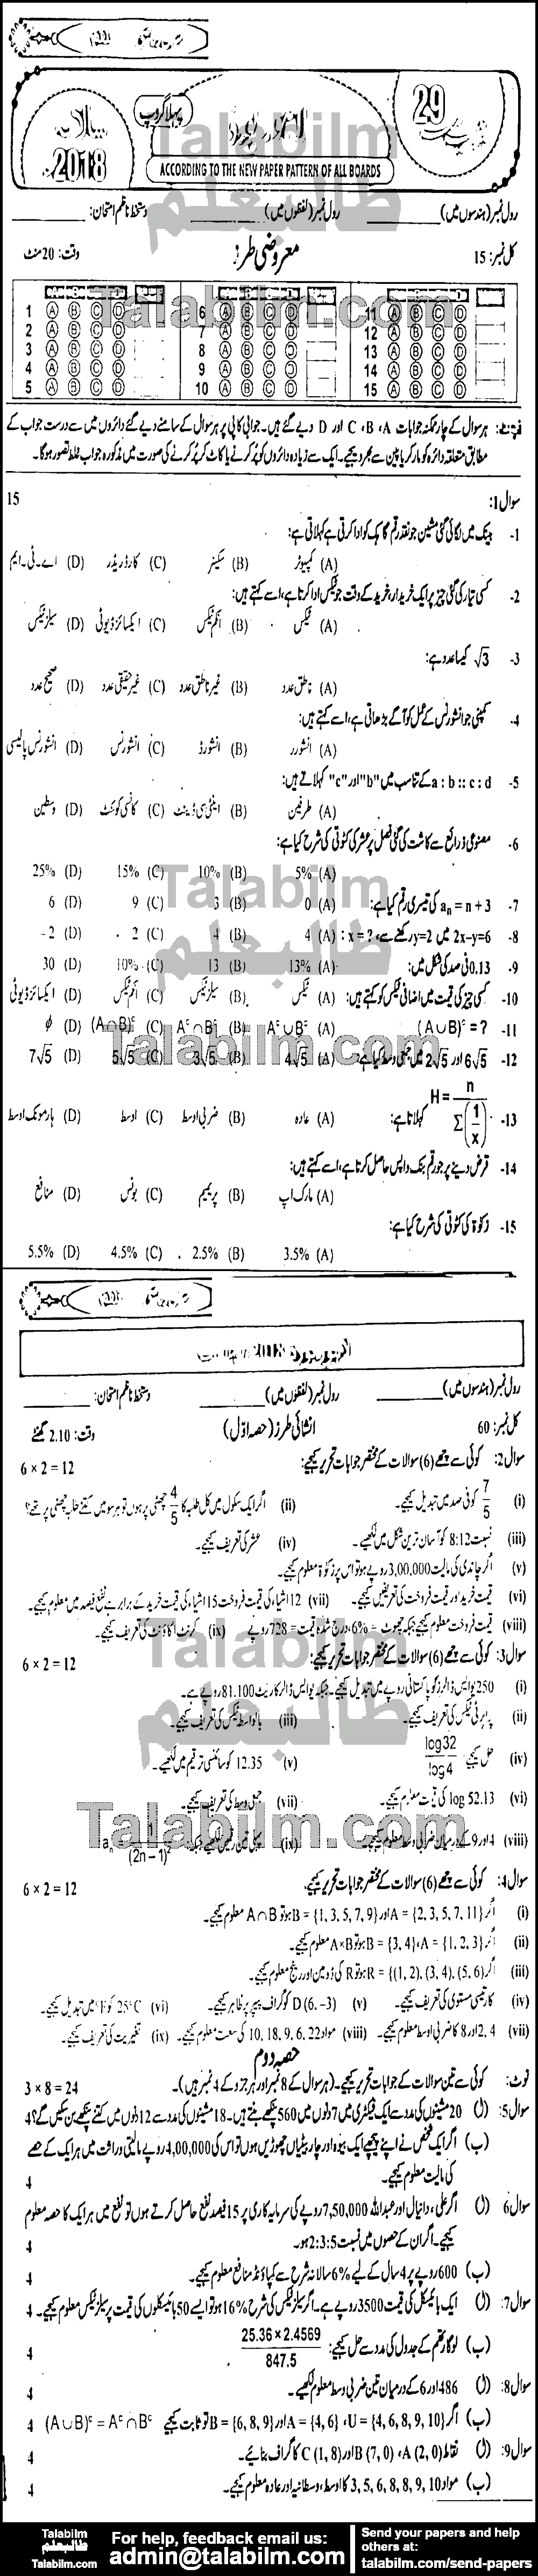 2018
29
پہلا گروپ
ACCORDING TO THE NEW PAPER PATTERN OF ALL BOARDS
رول نمبر (ہندسوں میں) رول نمبر (لفظوں میں) دستخط ناظم امتحان:
کل نمبر: 15 معروضی طرز وقت: 20 منٹ
1 A B C D 6 A B C D 11 A B C D
2 A B C D 7 A B C D 12 A B C D
3 A B C D 8 A B C D 13 A B C D
4 A B C D 9 A B C D 14 A B C D
5 A B C D 10 A B C D 15 A B C D
نوٹ: ہر سوال کے چار ممکنہ جوابات C، B، A اور D دیے گئے ہیں۔ جوابی کاپی پر ہر سوال کے سامنے دیے گئے دائروں میں سے درست جواب کے
مطابق متعلقہ دائرہ کو مارکر یا پین سے بھر دیجیے۔ ایک سے زیادہ دائروں کو پُر کرنے یا کاٹ کر پُر کرنے کی صورت میں مذکورہ جواب غلط تصور ہوگا۔
سوال 1: 15
1- بینک میں لگائی گئی مشین جو نقد رقم گاہک کو ادا کرتی ہے کہلاتی ہے:
(A) کمپیوٹر (B) سکینر (C) کارڈ ریڈر (D) اے۔ٹی۔ایم
2- کسی تیار کی گئی چیز پر ایک خریدار خرید کے وقت جو ٹیکس ادا کرتا ہے، اسے کہتے ہیں:
(A) ٹیکس (B) انکم ٹیکس (C) ایکسائز ڈیوٹی (D) سیلز ٹیکس
3- √3 کیسا عدد ہے:
(A) ناطق عدد (B) غیر ناطق عدد (C) غیر حقیقی عدد (D) صحیح عدد
4- کمپنی جو انشورنس کے عمل کو آگے بڑھاتی ہے، اسے کہتے ہیں:
(A) انشورر (B) انشورڈ (C) انشورنس (D) انشورنس پالیسی
5- a : b :: c : d کے تناسب میں "b" اور "c" کہلاتے ہیں:
(A) طرفین (B) اینٹی سی ڈینٹ (C) کانسی کوئنٹ (D) وسطین
6- مصنوعی ذرائع سے کاشت کی گئی فصل پر عشر کی کٹوتی کی شرح کیا ہے:
(A) 5% (B) 10% (C) 15% (D) 25%
7- aₙ = n + 3 کی تیسری رقم کیا ہے: (A) 0 (B) 3 (C) 9 (D) 6
8- 2x–y=6 میں y=2 رکھنے سے، x = ? : (A) 4 (B) 4 (C) 2 (D) –2
9- 0.13 فی صد کی شکل میں: (A) 13% (B) 13 (C) 10% (D) 30
10- کسی چیز کی قیمت میں اضافی ٹیکس کو کہتے ہیں: (A) ٹیکس (B) سیلز ٹیکس (C) انکم ٹیکس (D) ایکسائز ڈیوٹی
11- (A∪B)ᶜ = ? (A) Aᶜ∪Bᶜ (B) Aᶜ∩Bᶜ (C) (A∩B)ᶜ (D) ϕ
12- 6√5 اور 2√5 میں جمعی وسط کیا ہے: (A) 4√5 (B) 3√5 (C) 5√5 (D) 7√5
13- H = n / Σ(1/x) کہلاتا ہے: (A) عادہ (B) ضربی اوسط (C) اوسط (D) ہارمونک اوسط
14- قرض دینے پر جو رقم بنک واپس حاصل کرتا ہے، اسے کہتے ہیں:
(A) مارک اپ (B) پریمیم (C) بونس (D) منافع
15- زکوٰۃ کی کٹوتی کی شرح کیا ہے:
(A) 3.5% (B) 2.5% (C) 4.5% (D) 5.5%
رول نمبر (ہندسوں میں) رول نمبر (لفظوں میں) دستخط ناظم امتحان:
کل نمبر: 60 انشائی طرز (حصہ اوّل) وقت: 2.10 گھنٹے
سوال 2: کوئی سے چھے (6) سوالات کے مختصر جوابات تحریر کیجیے: 6 × 2 = 12
(i) 7/5 کو فی صد میں تبدیل کیجیے۔ (ii) اگر ایک سکول میں کل طلبہ کا 4/5 چھٹی پر ہوں تو ہر سو میں کتنے طلبہ چھٹی پر تھے؟
(iii) نسبت 8:12 کو آسان ترین شکل میں لکھیے۔ (iv) عشر کی تعریف کیجیے۔
(v) اگر چاندی کی مالیت 3,00,000 روپے ہو تو اس پر زکوٰۃ معلوم کیجیے۔
(vi) قیمت خرید اور قیمت فروخت کی تعریف کیجیے۔ (vii) 12 اشیاء کی قیمت فروخت 15 اشیاء کی قیمت خرید کے برابر ہے نفع فیصد میں معلوم کیجیے۔
(viii) قیمت فروخت معلوم کیجیے جبکہ چھوٹ = 6%، درج شدہ قیمت = 728 روپے (ix) کرنٹ اکاؤنٹ کی تعریف کیجیے۔
سوال 3: کوئی سے چھے (6) سوالات کے مختصر جوابات تحریر کیجیے: 6 × 2 = 12
(i) 250 یو ایس ڈالرز کو پاکستانی روپے میں تبدیل کیجیے۔ جبکہ یو ایس ڈالر کا ریٹ 81.100 روپے ہے۔
(ii) پراپرٹی ٹیکس کی تعریف کیجیے۔ (iii) بالواسطہ ٹیکس کی تعریف کیجیے۔
(iv) حل کیجیے log32 / log4 (v) 12.35 کو سائنسی ترقیم میں لکھیے۔
(vi) log 52.13 کی قیمت معلوم کیجیے۔ (vii) جمعی وسط کی تعریف کیجیے۔
(viii) 4 اور 9 کے درمیان ضربی وسط معلوم کیجیے۔ (ix) پہلی تین رقمیں لکھیے جبکہ: aₙ = 1 / (2n – 1)²
سوال 4: کوئی سے چھے (6) سوالات کے مختصر جوابات تحریر کیجیے: 6 × 2 = 12
(i) اگر A = {2, 3, 5, 7, 11} اور B = {1, 3, 5, 7, 9} ہو تو A∩B معلوم کیجیے۔
(ii) اگر A = {1, 2, 3}، B = {3, 4} ہو تو A×B معلوم کیجیے۔
(iii) اگر R = {(1, 2), (3, 4), (5, 6)} ہو تو R کی ڈومین اور رینج معلوم کیجیے۔
(iv) کارتیسی مستوی کی تعریف کیجیے۔ (v) D (6, –3) کو گراف پیپر پر ظاہر کیجیے۔ (vi) 25°C کو °F میں تبدیل کیجیے۔
(vii) 2، 4 اور 8 کا ضربی اوسط معلوم کیجیے۔ (viii) مواد 10, 18, 9, 6, 22 کی سعت معلوم کیجیے۔ (ix) تغیریت کی تعریف کیجیے۔
حصہ دوم
نوٹ: کوئی سے تین سوالات کے جوابات تحریر کیجیے۔ (ہر سوال کے 8 نمبر اور ہر جزو کے 4 نمبر ہیں)۔ 3 × 8 = 24
سوال 5: (ا) 20 مشینوں کی مدد سے ایک فیکٹری میں 7 دنوں میں 560 پنکھے بنتے ہیں۔ 18 مشینوں کی مدد سے 12 دنوں میں کتنے پنکھے بن سکیں گے؟ 4
(ب) اگر ایک شخص نے اپنے پیچھے ایک بیوہ اور چار بیٹیاں چھوڑیں ہوں تو اس کی 4,00,000 روپے مالیتی وراثت میں ہر ایک کے حصے
کی مالیت معلوم کیجیے۔ 4
سوال 6: (ا) اگر علی، دانیال اور عبداللہ 7,50,000 روپے کی سرمایہ کاری پر 15 فیصد نفع حاصل کرتے ہوں تو نفع میں ہر ایک کا حصہ معلوم
کیجیے۔ اگر ان کے حصوں میں نسبت 2:3:5 ہو۔ 4
(ب) 600 روپے پر 4 سال کے لیے 6% سالانہ شرح سے کمپاؤنڈ منافع معلوم کیجیے۔ 4
سوال 7: (ا) ایک بائیسکل کی قیمت 3500 روپے ہے۔ اگر سیلز ٹیکس کی شرح 16% ہو تو ایسے 50 بائیسکلوں کی قیمت پر سیلز ٹیکس معلوم کیجیے۔ 4
(ب) لوگارتھم کے جدول کی مدد سے حل کیجیے: 25.36 × 2.4569 / 847.5 4
سوال 8: (ا) 486 اور 6 کے درمیان تین ضربی وسط معلوم لکھیے۔ 4
(ب) اگر U = {4, 6, 8, 9, 10}، A = {4, 6} اور B = {6, 8, 9} تو ثابت کیجیے (A∪B)ᶜ = Aᶜ∩Bᶜ 4
سوال 9: (ا) نقاط A (2, 0)، B (7, 0) اور C (1, 8) کا گراف بنائیے۔ 4
(ب) مواد 3, 5, 6, 8, 8, 9, 10 کا اوسط، وسطانیہ اور عادہ معلوم کیجیے۔ 4
Talabilm
طالبعلم
Talabilm.com
For help, feedback email us:
admin@talabilm.com
Send your papers and help
others at:
talabilm.com/send-papers